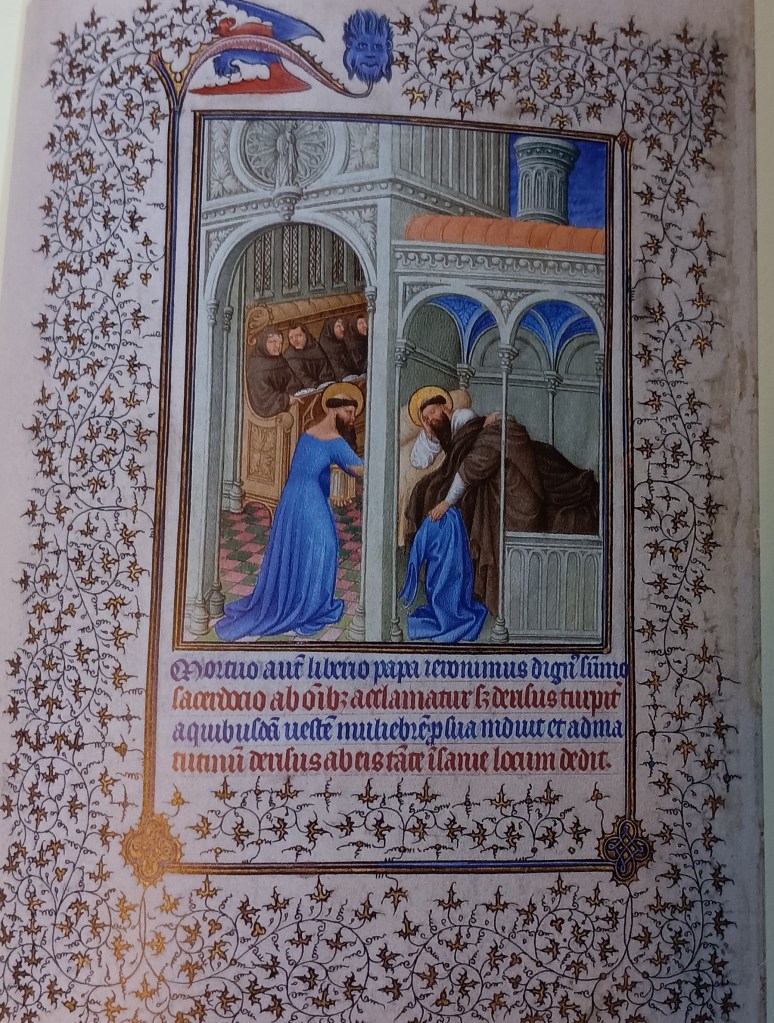 Mortuo aut̄ liberio papa ieronimus dign᷒ sūmo
sacerdocio ab oīb᷒ acclamatur sꝫ derisus turpit᷒
a quibusdā vestē muliebrē p sua induit et ad ma
tutinū derisus ab eis tāte īsanie locum dedit.